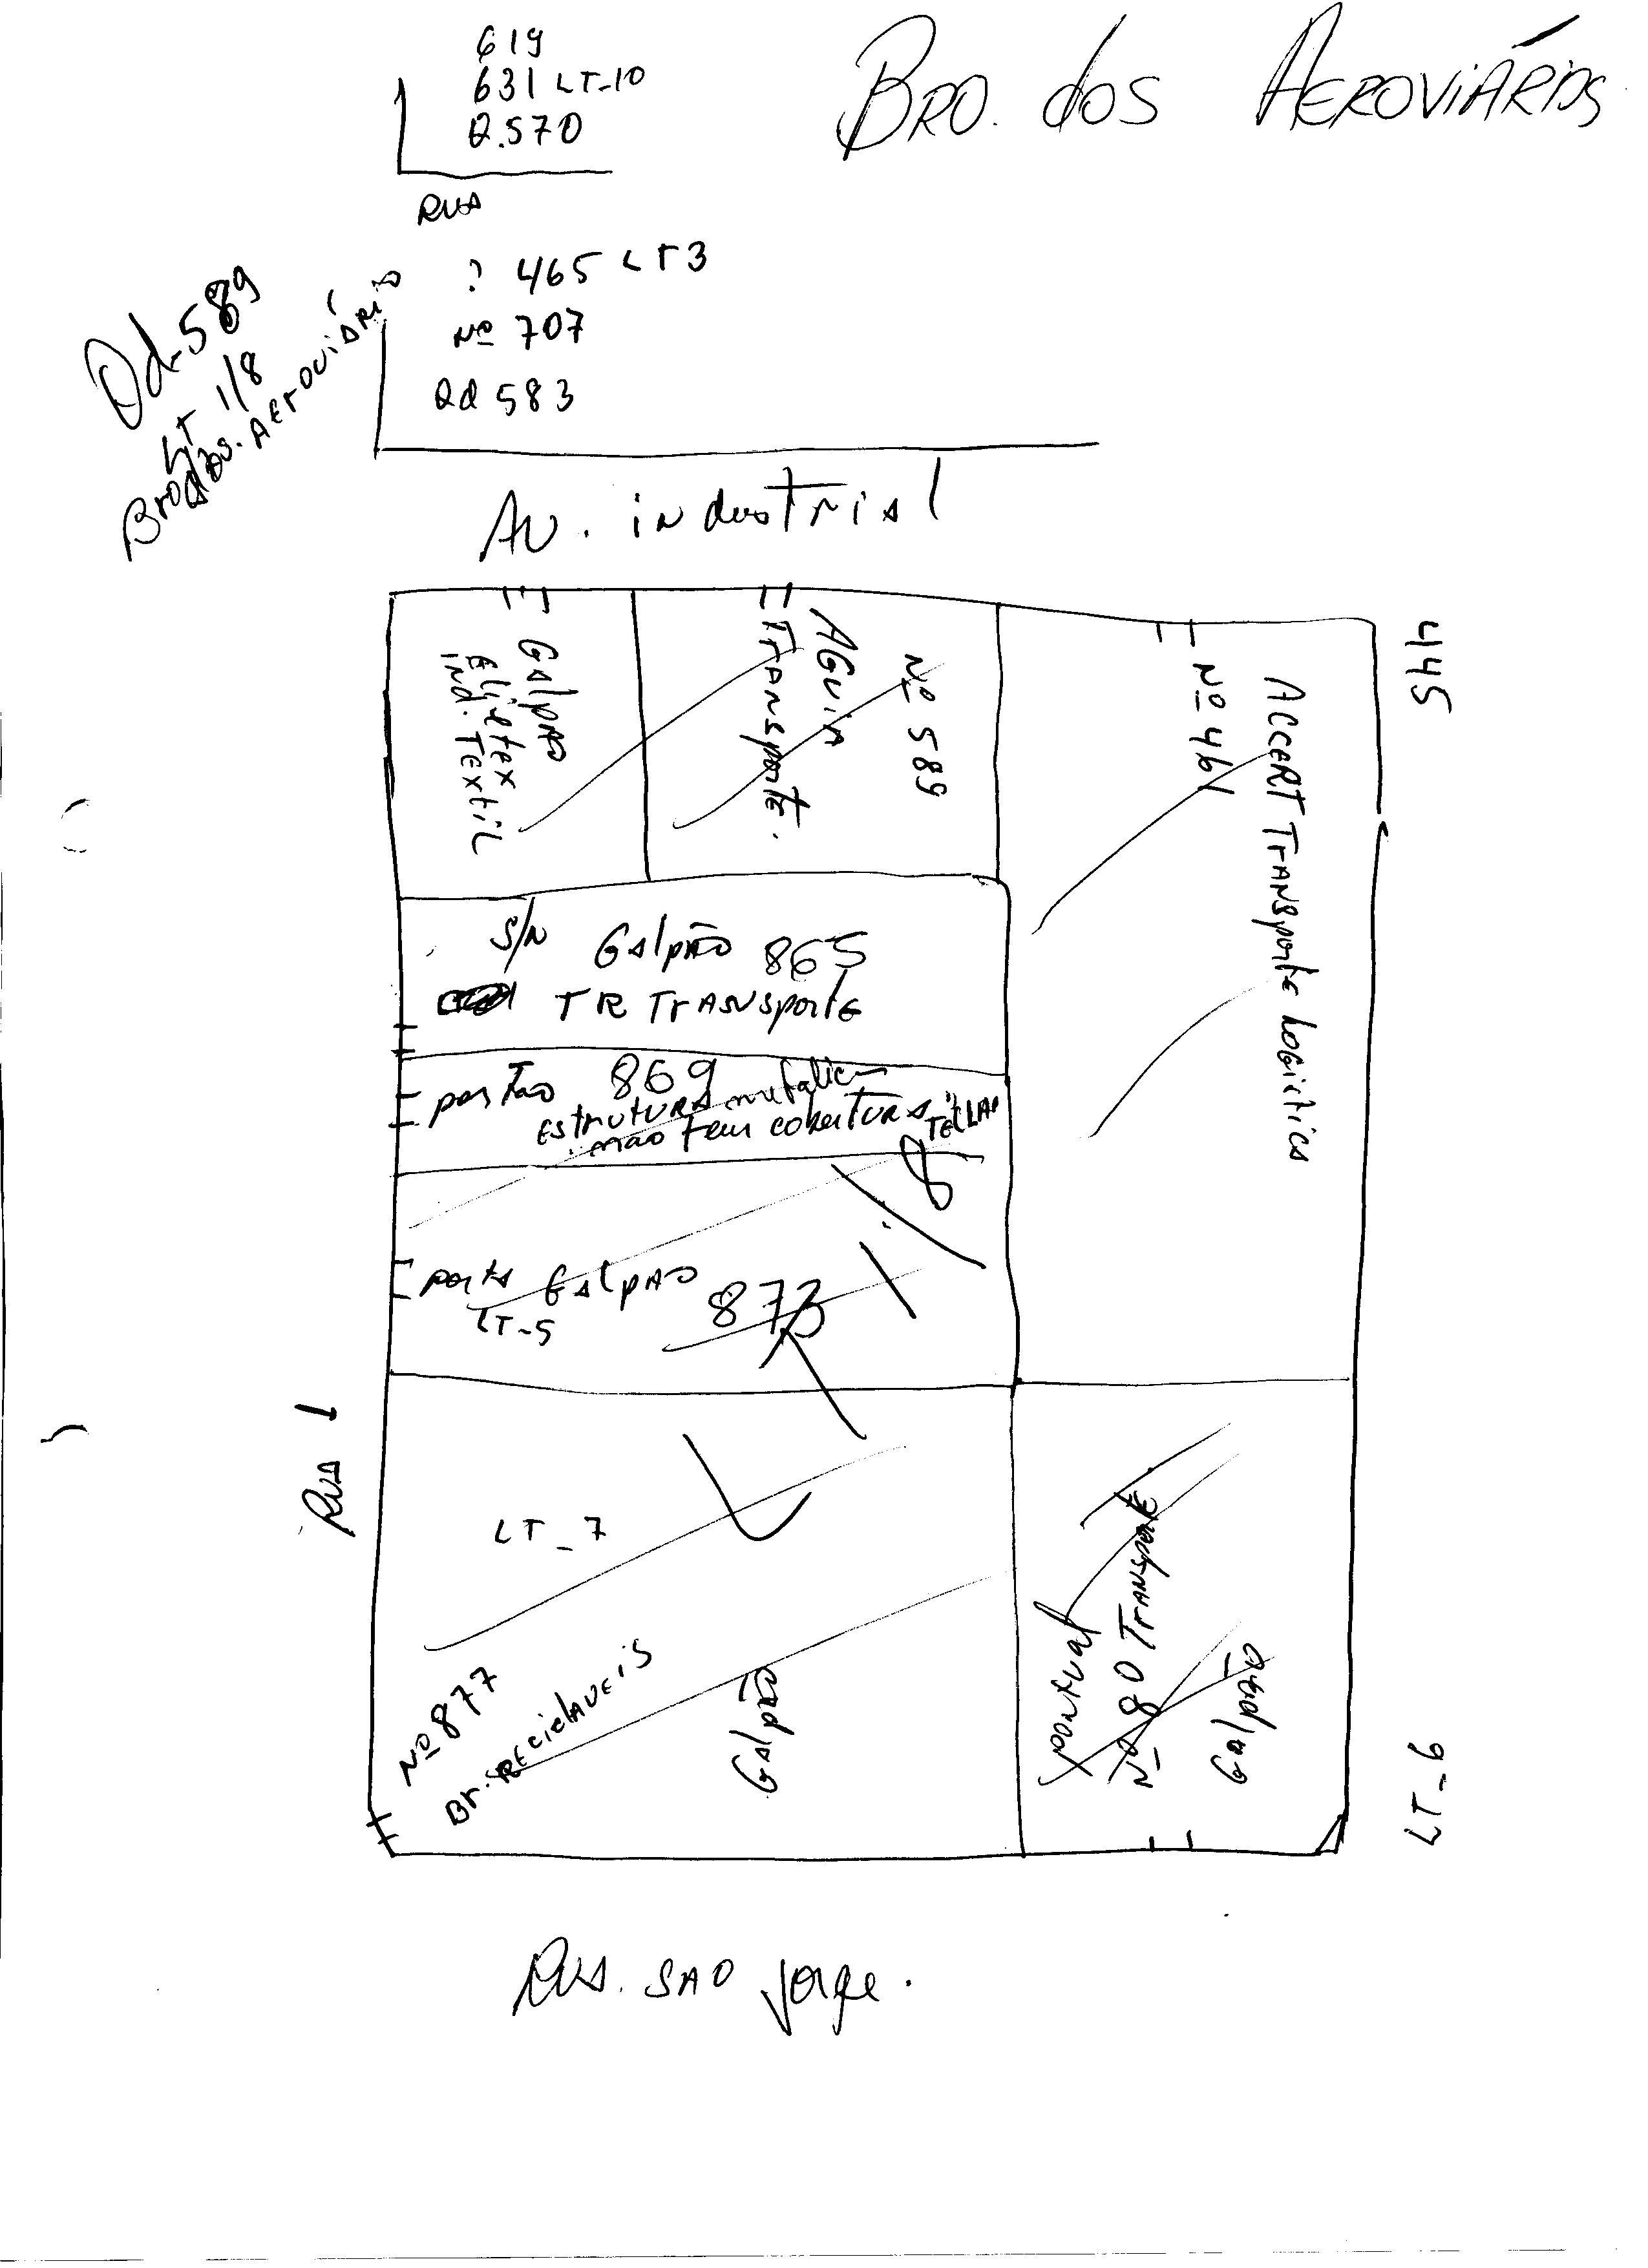 BRO. dos AEROVIÁRIOS
619
631 LT-10
Q.570
RUA
? 465 LT3
Nº 707
Qd 583
Qd-589
LT 1/8
Bro dos. AEroviário
AV. industrial
GAlpão
Elietex
IND. TExtil
Nº 589
AGUIA
TrANSportE.
ACCERT TrANSportE LoGistica
Nº 461
445
S/N GAlpão 865
TR TrANSportE
portão 869
EStrutURA metalica
não tem cobertura
8
porta GAlpão 873
LT-5
RUA 1
LT_7
Nº 877
Br. RECiclAVEiS
GAlpão
pontual
Nº 80 TrANSportE
GAlpão
LT_6
RUA. SAO jorge.